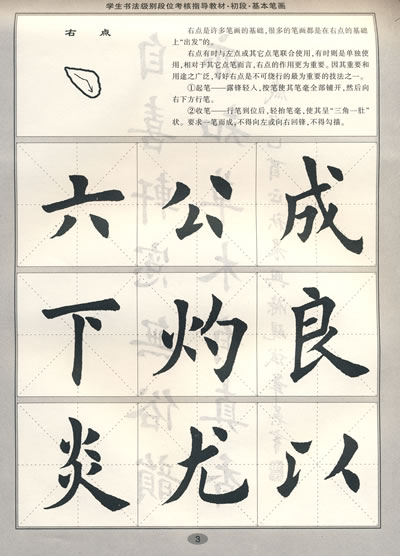 学生书法级别段位考核指导教材·初段·基本笔画
右 点
右点是许多笔画的基础,很多的笔画都是在右点的基础
上“出发”的。
右点有时与左点或其它点笔联合使用,有时则是单独使
用,相对于其它点笔而言,右点的作用更为重要。因其重要和
用途之广泛,写好右点是不可绕行的最为重要的技法之一。
①起笔——露锋轻入,按笔使其笔毫全部铺开,然后向
右下方行笔。
②收笔——行笔到位后,轻抬笔毫,使其呈“三角一肚”
状。要求一笔而成,不得向左或向右回锋,不得勾描。
六 公 成
下 灼 良
炎 尤 以
3